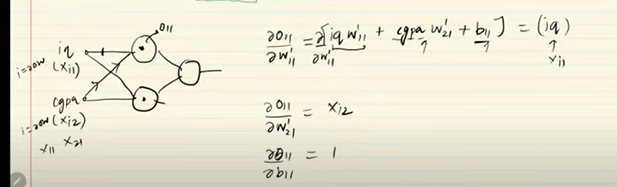 O11
iq
i=row (xi1)
cgpa
i=row (xi2)
x11 x21
∂O11/∂w'11 = ∂[iq w'11 + cgpa w'21 + b11]/∂w'11 = (iq)
xi1
∂O11/∂w'21 = xi2
∂O11/∂b11 = 1